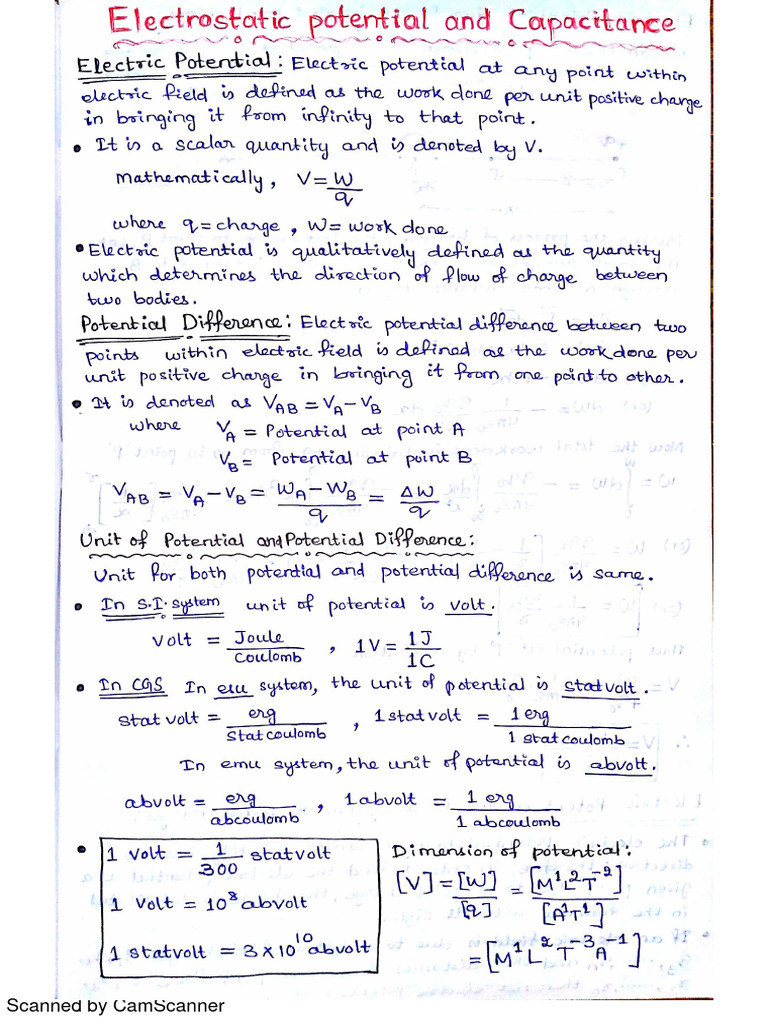 Electrostatic potential and Capacitance
Electric Potential: Electric potential at any point within
electric field is defined as the work done per unit positive charge
in bringing it from infinity to that point.
• It is a scalar quantity and is denoted by V.
Mathematically, V = W/q
where q = charge, W = work done
• Electric potential is qualitatively defined as the quantity
which determines the direction of flow of charge between
two bodies.
Potential Difference: Electric potential difference between two
points within electric field is defined as the work done per
unit positive charge in bringing it from one point to other.
• It is denoted as V_AB = V_A - V_B
where V_A = Potential at point A
V_B = Potential at point B
V_AB = V_A - V_B = (W_A - W_B)/q = ΔW/q
Unit of Potential and Potential Difference:
Unit for both potential and potential difference is same.
• In S.I. system unit of potential is volt.
volt = Joule/Coulomb , 1V = 1J/1C
• In CGS In esu system, the unit of potential is statvolt.
stat volt = erg/Statcoulomb , 1 stat volt = 1 erg/1 stat coulomb
In emu system, the unit of potential is abvolt.
abvolt = erg/abcoulomb , 1 abvolt = 1 erg/1 abcoulomb
• 1 volt = 1/300 statvolt
1 volt = 10⁸ abvolt
1 statvolt = 3 x 10¹⁰ abvolt
Dimension of potential:
[V] = [W]/[q] = [M¹L²T⁻²]/[A¹T¹]
= [M¹L²T⁻³A⁻¹]
Scanned by CamScanner